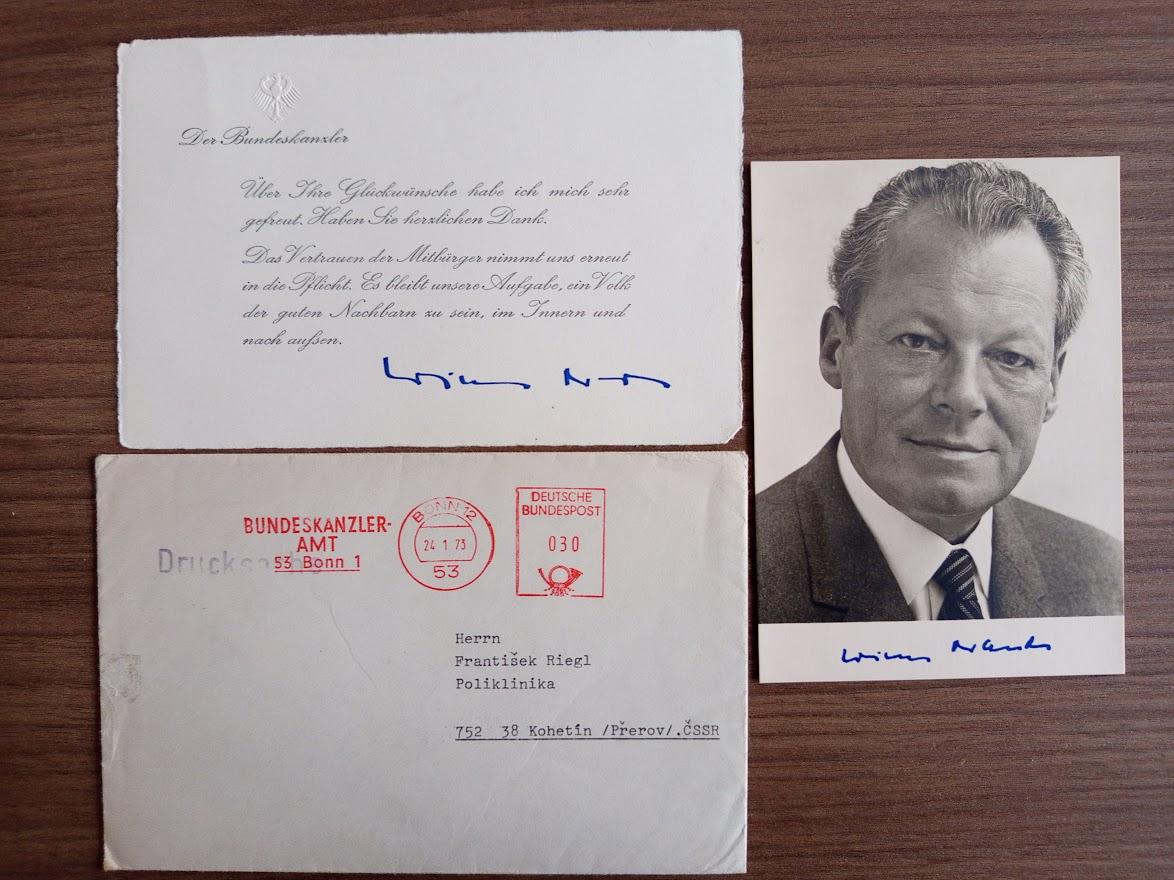 Der Bundeskanzler
Über Ihre Glückwünsche habe ich mich sehr
gefreut. Haben Sie herzlichen Dank.
Das Vertrauen der Mitbürger nimmt uns erneut
in die Pflicht. Es bleibt unsere Aufgabe, ein Volk
der guten Nachbarn zu sein, im Innern und
nach außen.
BUNDESKANZLER-
AMT
53 Bonn 1
BONN 12
24 1 73
53
DEUTSCHE
BUNDESPOST
030
Herrn
František Riegl
Poliklinika
752 38 Kohetín /Přerov/.ČSSR